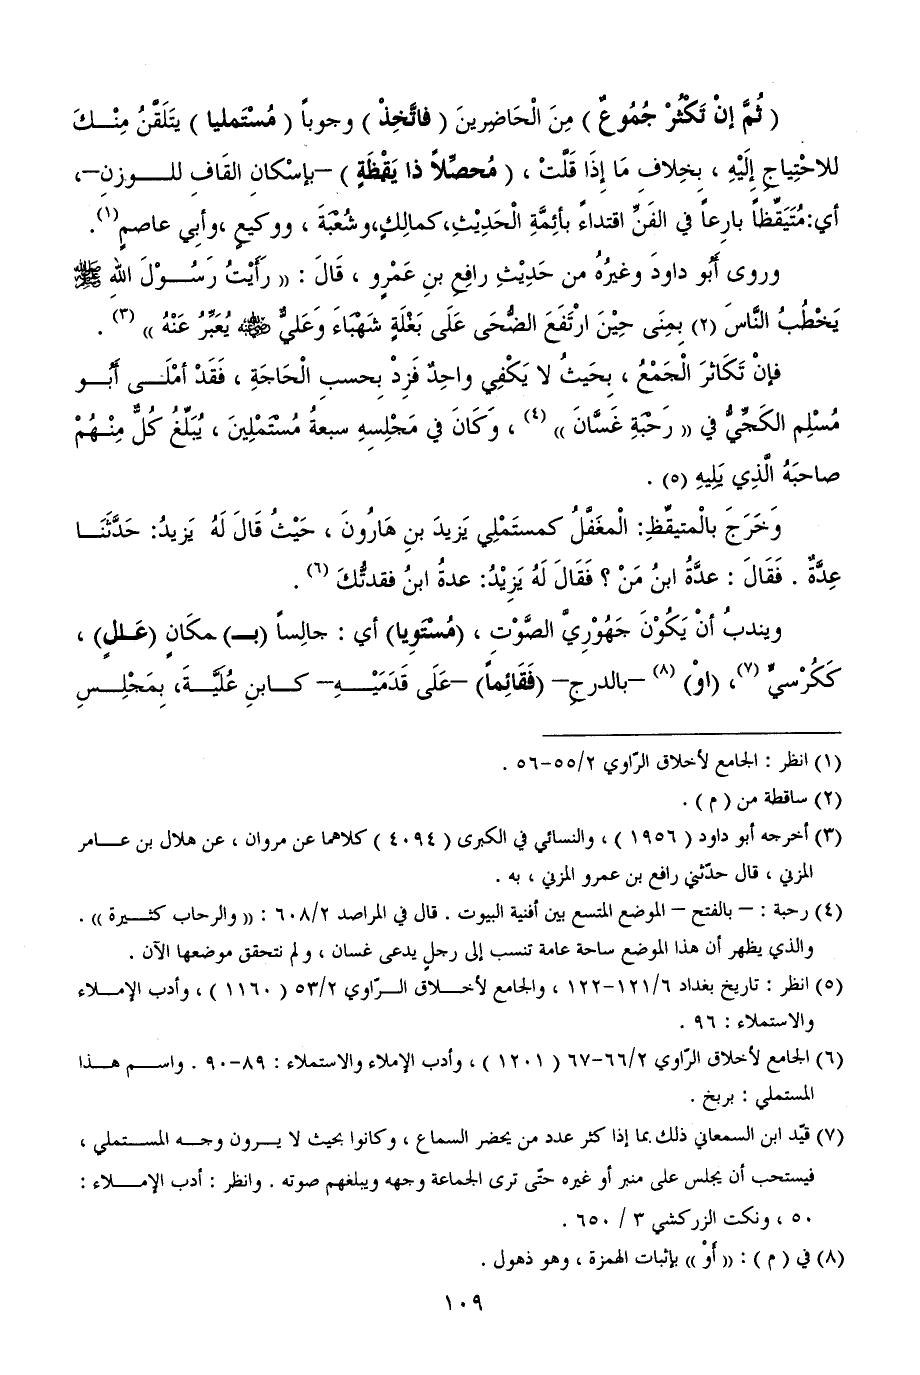 ( ثُمَّ إنْ تَكْثُرْ جُمُوعٌ ) مِنَ الْحَاضِرينَ ( فاتَّخِذْ ) وجوباً ( مُسْتَمليا ) يتَلَقَّنُ مِنْـكَ
للاحْتِياجِ إلَيْهِ ، بخِلافِ مَا إذَا قَلَّتْ ، ( مُحصِّلاً ذا يَقْظَةٍ ) –بإسْكانِ القَافِ للـوزنِ–،
أي:مُتَيَقِّظاً بارعاً في الفَنِّ اقتداءً بأئِمَّةِ الْحَديثِ،كمالكٍ،وشُعْبَةَ ، ووكيعٍ ،وأبي عاصمٍ(١).
وروى أَبُو داودَ وغيرُهُ من حَديْثِ رافِعِ بنِ عَمْرٍو ، قَالَ : « رَأَيْتُ رَسُـوْلَ اللهِ ﷺ
يَخْطُبُ النَّاسَ (٢) بِمِنَى حِيْنَ ارْتَفَعَ الضُّحَى عَلَى بَغْلَةٍ شَهْبَاءَ وَعَليٌّ ﷺ يُعَبِّرُ عَنْهُ » (٣) .
فإنْ تَكَاثرَ الْجَمْعُ ، بحَيثُ لا يَكْفِي واحِدٌ فَزِدْ بحسبِ الْحَاجَةِ ، فَقَدْ أمْلَـى أَبُـو
مُسْلِم الكَجِّيُّ في « رَحْبَةِ غَسَّانَ » (٤) ، وَكَانَ في مَجْلِسِهِ سبعةُ مُسْتَمْلِينَ ، يُبَلِّغُ كُلٌّ مِنْـهُمْ
صاحبَهُ الَّذِي يَلِيهِ (٥) .
وَخَرَجَ بالْمتيقِّظِ: الْمغَفَّلُ كمستَمْلِي يَزيدَ بنِ هَارُونَ ، حَيْثُ قَالَ لَهُ يَزيدُ: حَدَّثَنَـا
عِدَّةٌ . فَقَالَ : عدَّةُ ابنُ مَنْ ؟ فَقَالَ لَهُ يَزِيْدُ: عدةُ ابنُ فقدتُّكَ (٦) .
ويندبُ أنْ يَكُوْنَ جَهُوْرِيَّ الصَّوْتِ ، (مُسْتَويا) أي : جالِساً (بـ) مكَانٍ (عَـالٍ) ،
ككُرْسيٍّ (٧)، (اوْ) (٨) –بالدرجِ– (فَقَائِماً) –عَلَى قدَمَيْـهِ– كـابنِ عُلَيَّـةَ، بِمَجْلِـسِ
(١) انظر : الجامع لأخلاق الرّاوي ٢/٥٥-٥٦ .
(٢) ساقطة من ( م ) .
(٣) أخرجه أبو داود ( ١٩٥٦ ) ، والنسائي في الكبرى ( ٤٠٩٤ ) كلاهما عن مروان ، عن هلال بن عـامر
المزني ، قال حدّثني رافع بن عمرو المزني ، به .
(٤) رحبة : – بالفتح – الموضع المتسع بين أفنية البيوت . قال في المراصد ٢/٦٠٨ : « والرحاب كثـيرة » .
والذي يظهر أن هذا الموضع ساحة عامة تنسب إلى رجلٍ يدعى غسان ، ولم نتحقق موضعها الآن .
(٥) انظر : تاريخ بغداد ٦/١٢١-١٢٢ ، والجامع لأخـلاق الـرّاوي ٢/٥٣ ( ١١٦٠ ) ، وأدب الإمـلاء
والاستملاء : ٩٦ .
(٦) الجامع لأخلاق الرّاوي ٢/٦٦-٦٧ ( ١٢٠١ ) ، وأدب الإملاء والاستملاء : ٨٩-٩٠ . واسـم هـذا
المستملي : بربخ .
(٧) قيّد ابن السمعاني ذلك بما إذا كثر عدد من يحضر السماع ، وكانوا بحيث لا يـرون وجـه المسـتملي ،
فيستحب أن يجلس على منبر أو غيره حتّى ترى الجماعة وجهه ويبلغهم صوته . وانظر : أدب الإمـلاء :
٥٠ ، ونكت الزركشي ٣ / ٦٥٠ .
(٨) في ( م ) : « أَوْ » بإثبات الهمزة ، وهو ذهول .
١٠٩